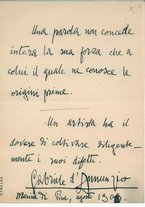 Una parola non concede
intera la sua forza che a
colui il quale ne conosce le
origini prime.
Un artista ha il
dovere di coltivare diligente-
mente i suoi difetti.
Gabriele d'Annunzio
Marina di Pisa, agosto